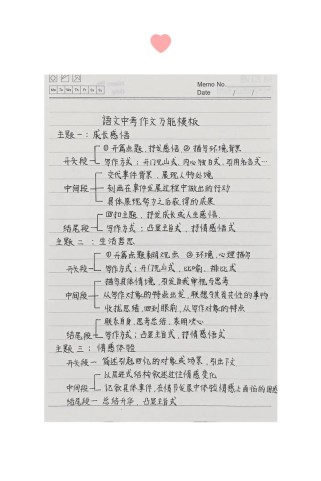 Memo No.
Mo Tu We Th Fr Sa Su
Date / /
语文中考作文万能模板
主题一：成长感悟
①开篇点题，抒发感悟 ②描写环境背景
开头段
写作方式：开门见山式、内心独白式、引用名言式…
交代事件背景，展现人物处境
中间段 刻画在事件发展过程中做出的行动
具体展现努力之后获得的成果
回扣主题，抒发成长或人生感悟
结尾段
写作方式：凸显主旨式，抒情感悟式
主题二：生活哲思
①开篇点题表明观点 ②环境、心理描写
开头段
写作方式：开门见山式，比喻、排比式
描写具体情境，引发自我审视与思考
中间段 从写作对象的特点出发，联想与其有共性的事物
收拢思绪，回到眼前，从写作对象的特点
联系自身，思考总结，表明决心
结尾段 写作方式：凸显主旨式，抒情感悟式
主题三：情感体验
开头段 简述引起回忆的对象或场景，引出下文
以层递式结构叙述过往情感变化
中间段 记叙具体事件，在情节发展中体验情感上
结尾段 总结升华，凸显主旨式